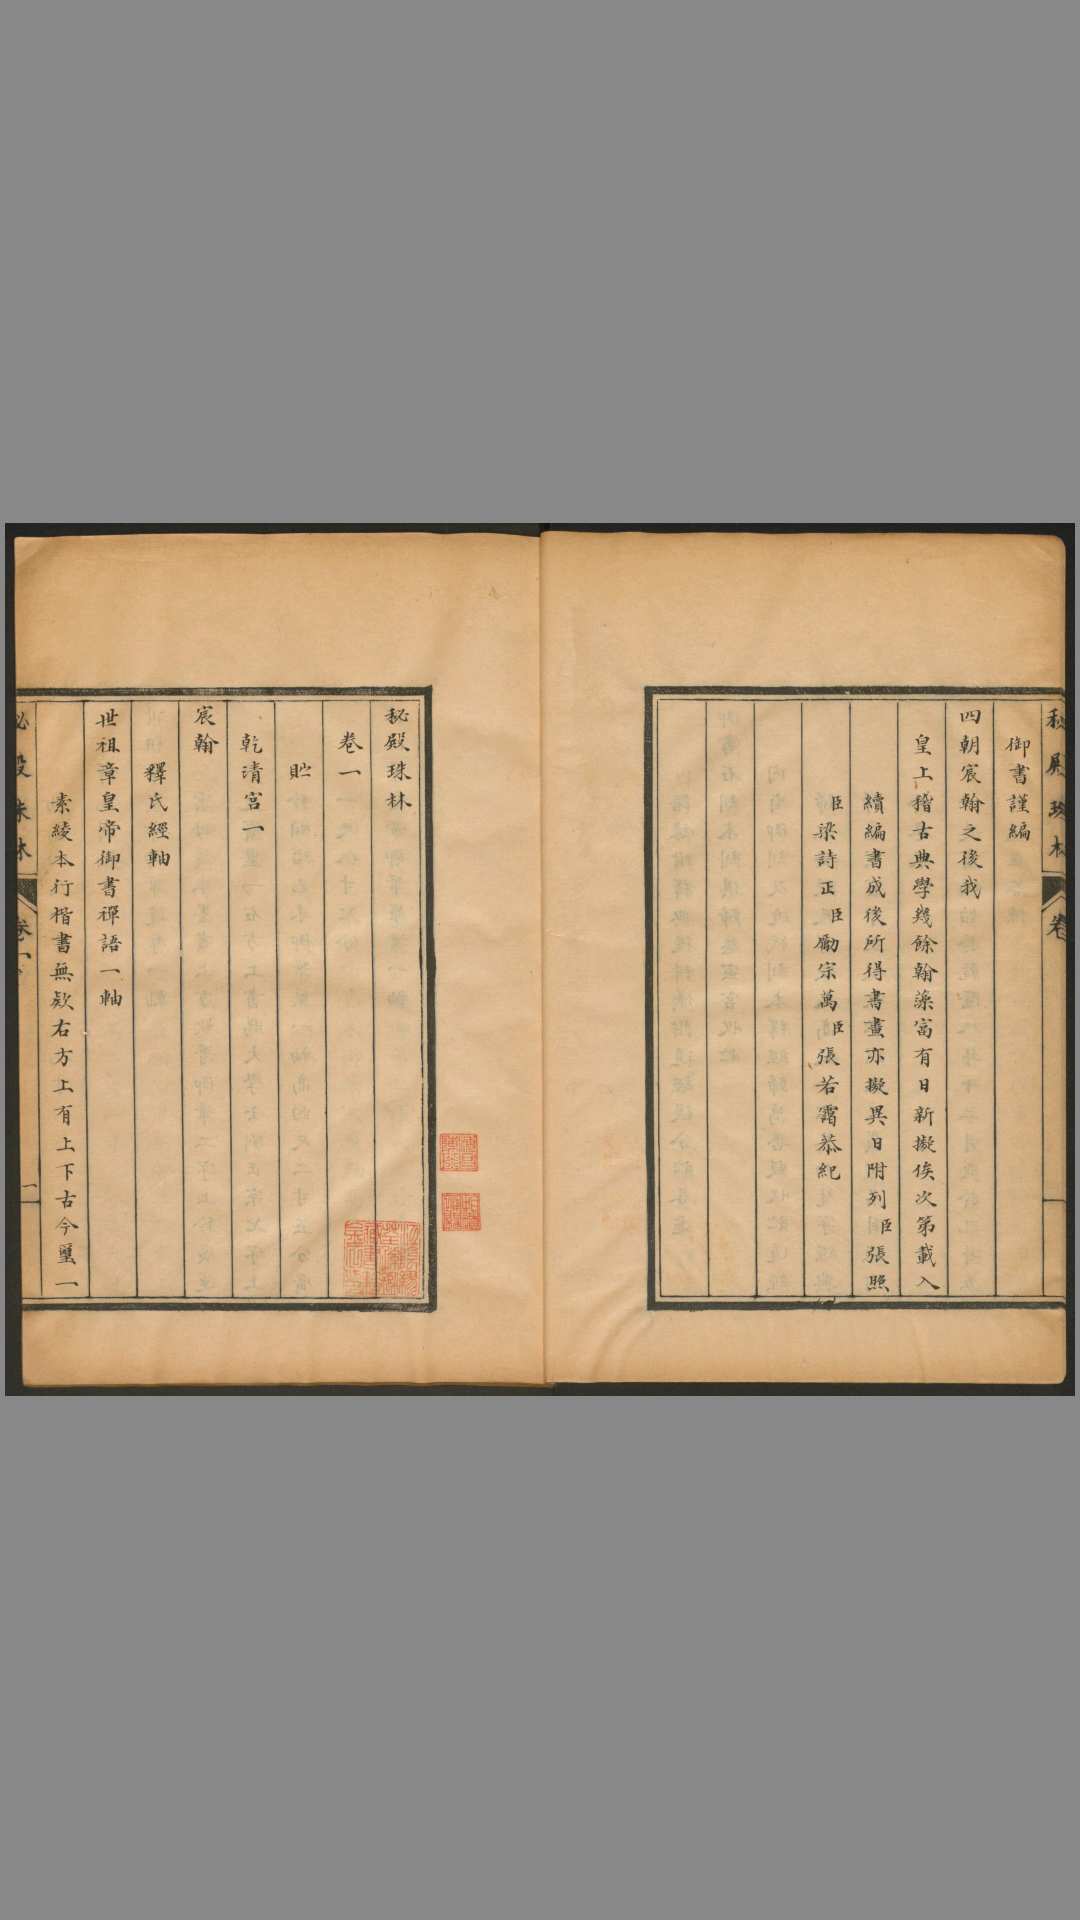 御書謹編
四朝宸翰之後我
皇上稽古典學幾餘翰藻富有日新擬俟次第載入
續編書成後所得書畫亦擬異日附列臣張照
臣梁詩正臣勵宗萬臣張若靄恭紀
秘殿珠林
卷一
貯
乾清宮一
宸翰
釋氏經軸
世祖章皇帝御書禪語一軸
素綾本行楷書無欵右方上有上下古今璽一
秘殿珠林
卷一
一